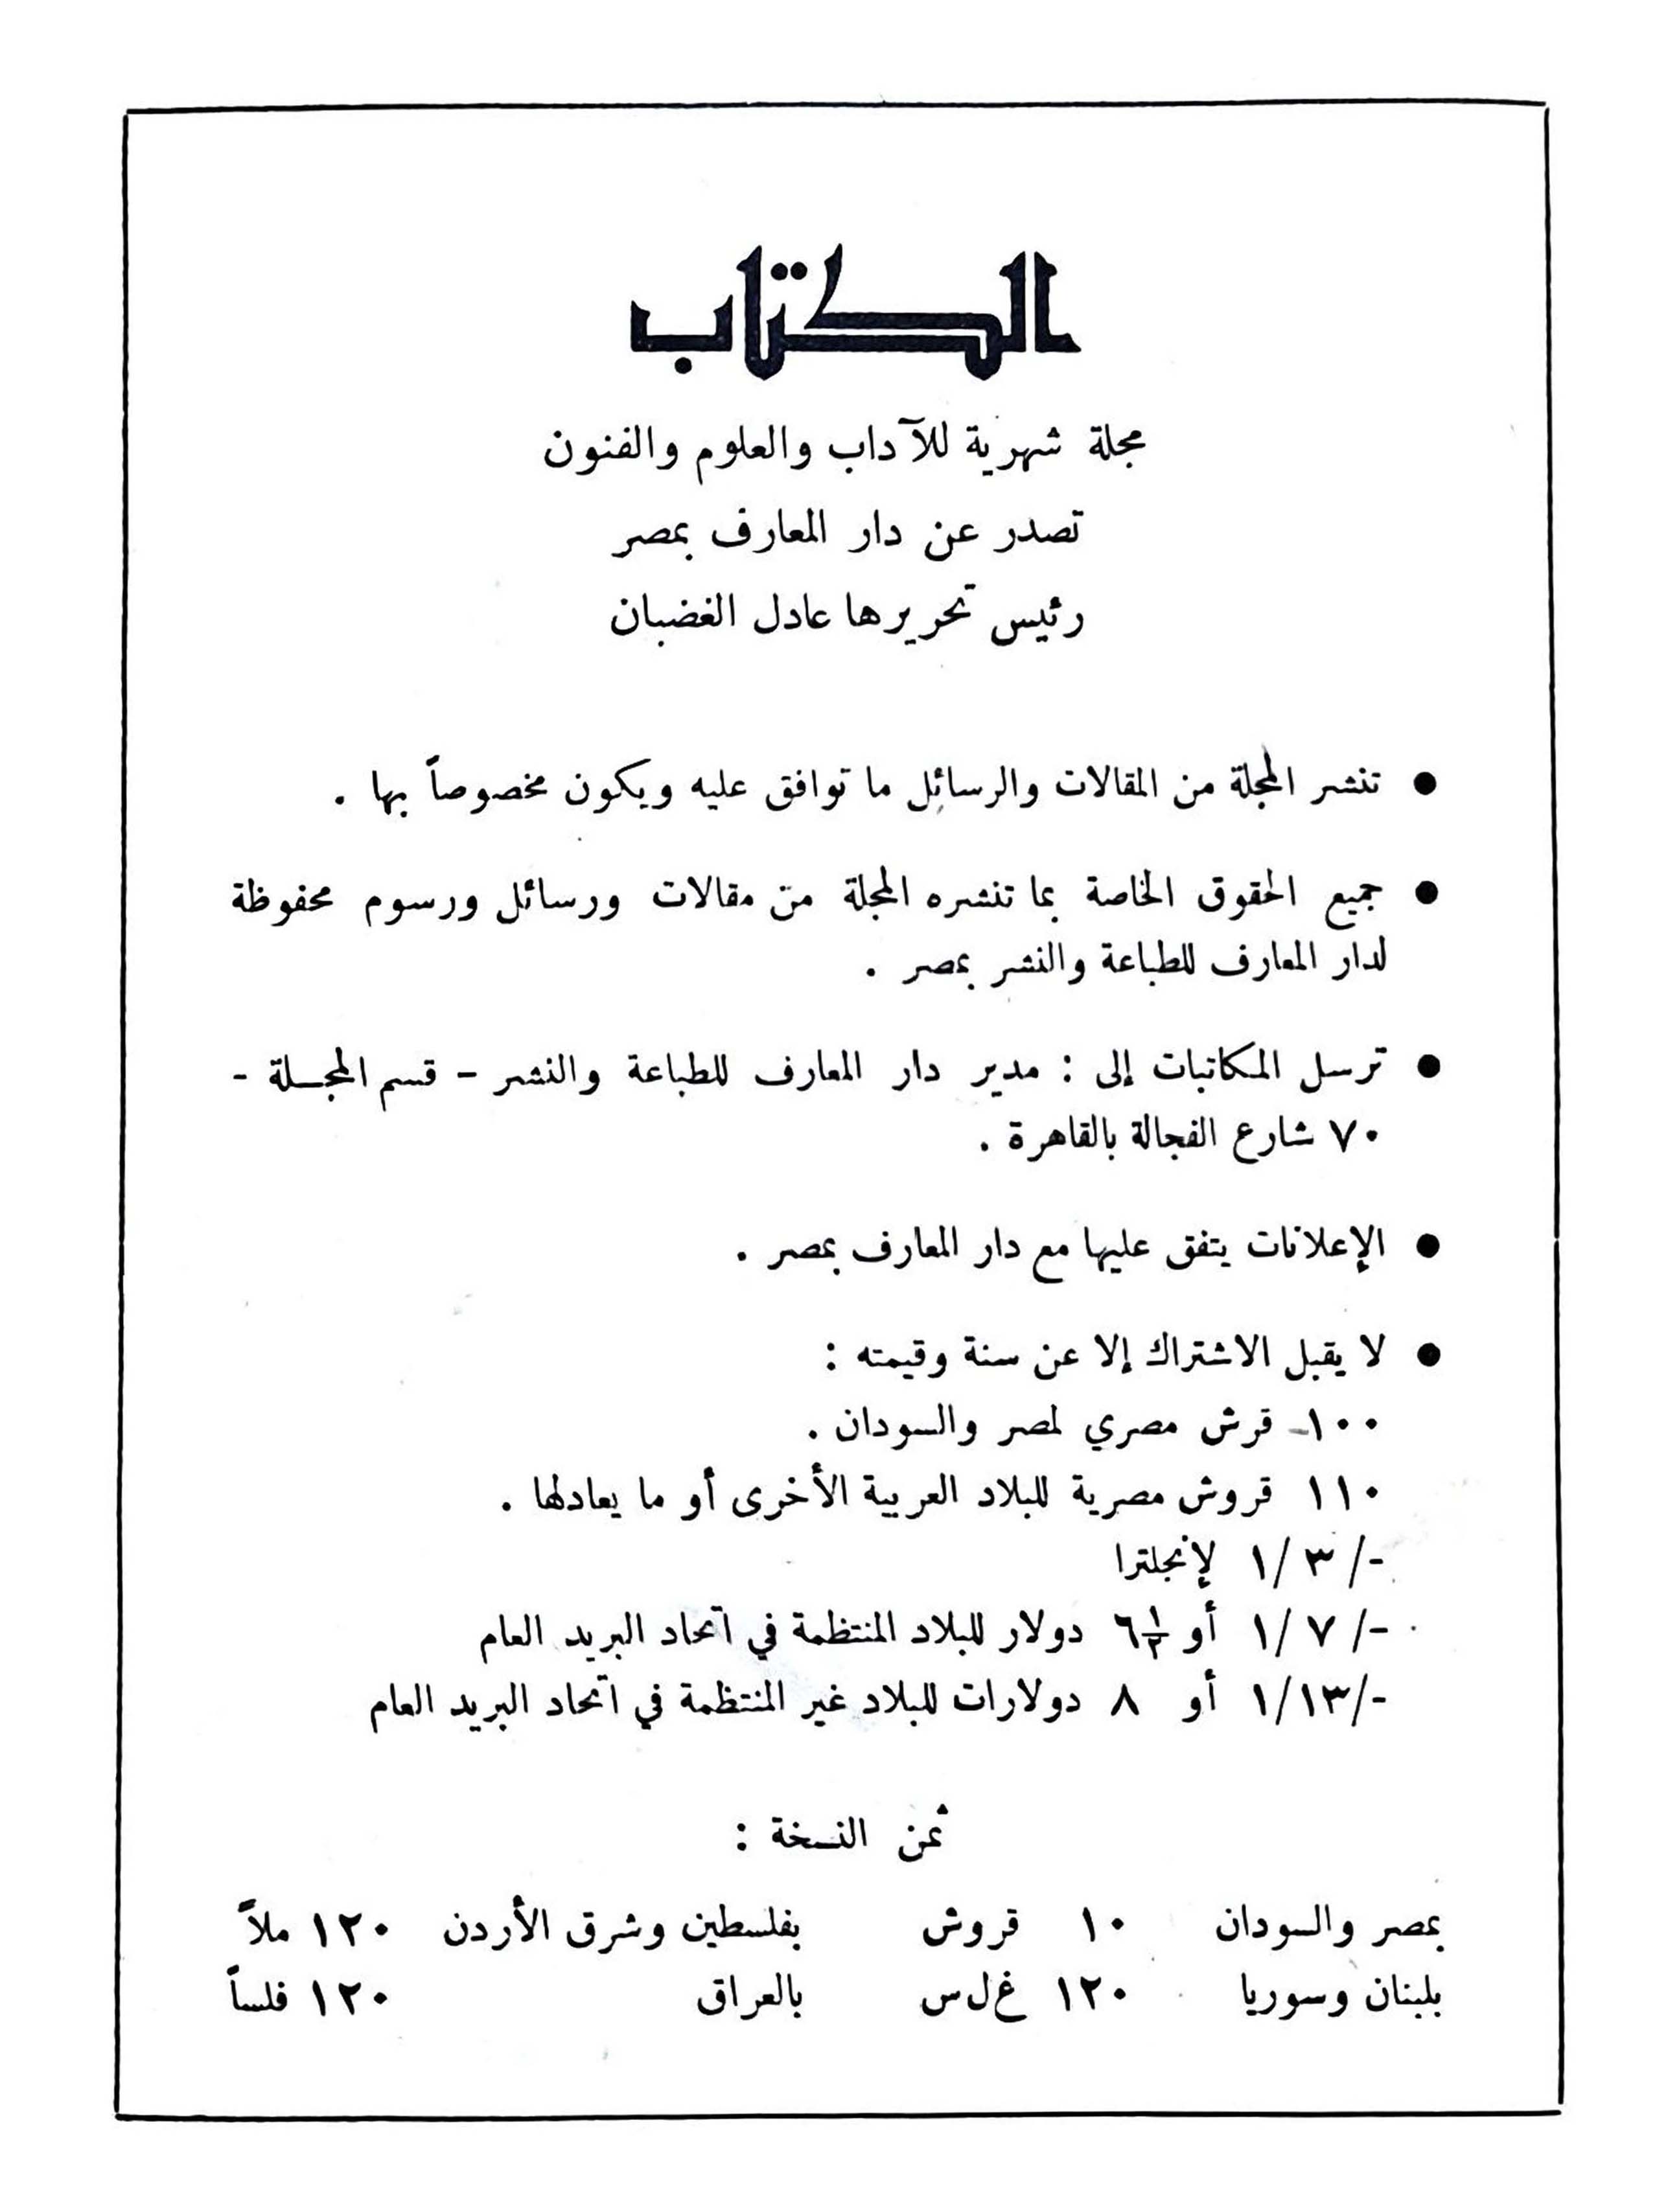 الكتاب
مجلة شهرية للآداب والعلوم والفنون
تصدر عن دار المعارف بمصر
رئيس تحريرها عادل الغضبان
● تنشر المجلة من المقالات والرسائل ما توافق عليه ويكون مخصوصاً بها .
● جميع الحقوق الخاصة بما تنشره المجلة من مقالات ورسائل ورسوم محفوظة
لدار المعارف للطباعة والنشر بمصر .
● ترسل المكاتبات إلى : مدير دار المعارف للطباعة والنشر – قسم المجـلة –
٧٠ شارع الفجالة بالقاهرة .
● الإعلانات يتفق عليها مع دار المعارف بمصر .
● لا يقبل الاشتراك إلا عن سنة وقيمته :
١٠٠ قرش مصري لمصر والسودان .
١١٠ قروش مصرية للبلاد العربية الأخرى أو ما يعادلها .
-/٣/١ لإنجلترا
-/٧/١ أو ٦½ دولار للبلاد المنتظمة في اتحاد البريد العام
-/١٣/١ أو ٨ دولارات للبلاد غير المنتظمة في اتحاد البريد العام
ثمن النسخة :
بمصر والسودان ١٠ قروش بفلسطين وشرق الأردن ١٢٠ ملاً
بلبنان وسوريا ١٢٠ غ ل س بالعراق ١٢٠ فلساً